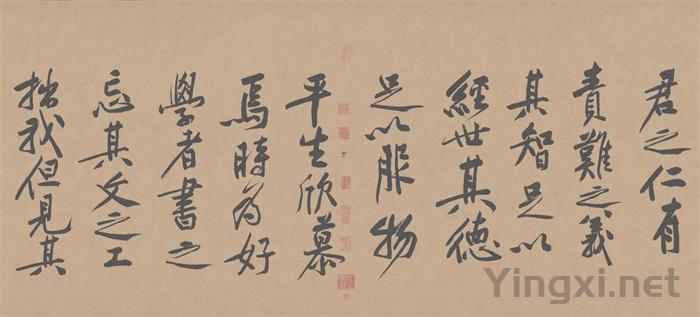 君之仁有
責難之義
其智足以
經世其德
足以服物
平生欣慕
焉時為好
學者書之
忘其文之工
拙我但見其
Yingxi.net